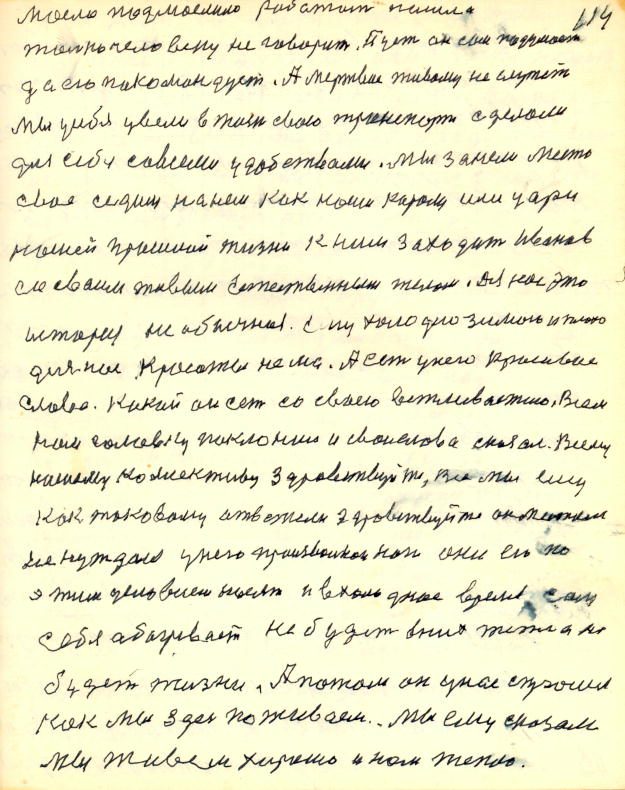 114
такого человеку не говорит. Пуст он сам подумает
да с по покомандует. А мертвое живому не служит
Мы цебя увели в тжзн свою транспорт сделали
для себя совсеми удобствами. Мы заняли место
свое седим на нем как наши короли или цари
нашей прошлой жизни К ним заходит Иванов
со своим живым Естественным телом. Для нас это
история не обычная. Ему холодно зимою и плохо
для нас Красоты нема. А ест у него Красивые
слова. Какой он ест со своею вежливостию. Всем
нам головку поклонил и свои слова сказал. Всему
нашему Колективу Здравствуйте, Все мы ему
Как таковому ответили здравствуйте он местам
не нуждался у него ноги они его по
этим условием носят и в холодное время сам
себя обогривает не будет в них тепла не
будет жизни. А потом он у нас спросил
Как мы здес поживаем. Мы ему сказали
Мы живем хорошо и нам тепло.